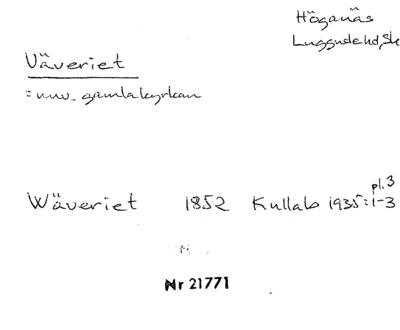 Höganäs
Luggude hd, Sk
Väveriet
= nuv. gamla kyrkan
Wäveriet 1852 Kullab 1935:1-3 pl. 3
Nr 21771